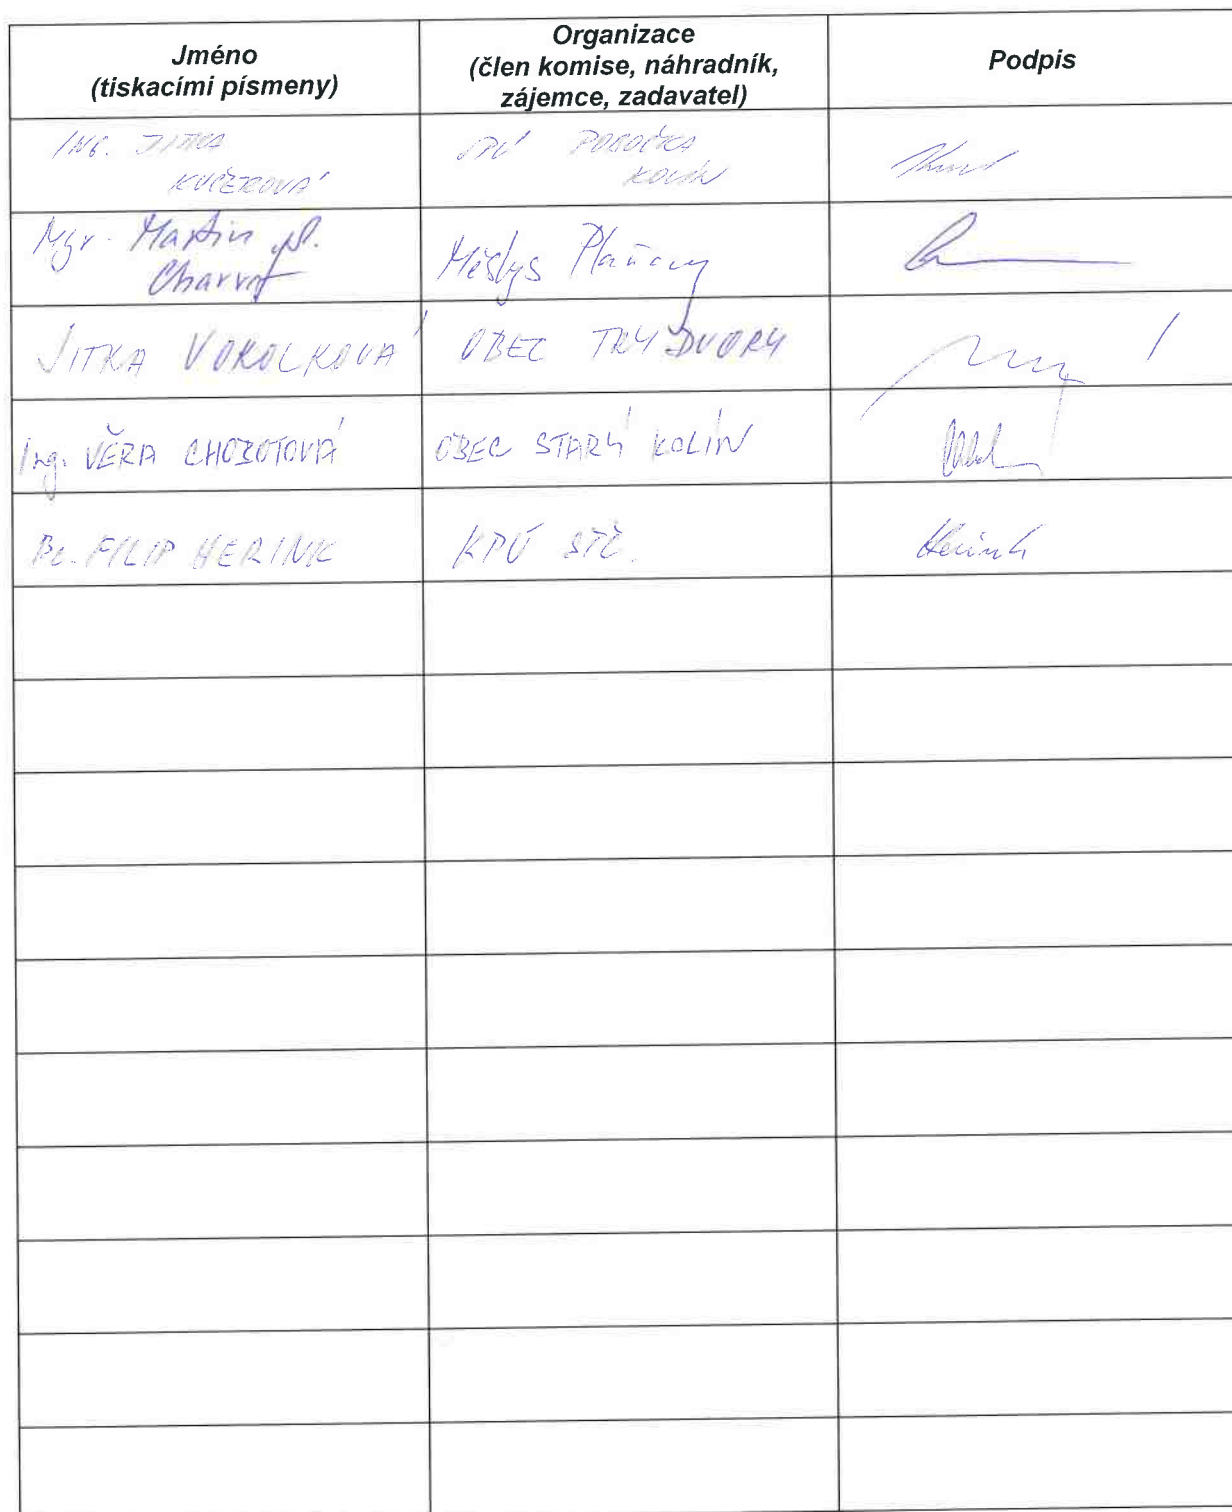 Jméno
(tiskacími písmeny)
Organizace
(člen komise, náhradník,
zájemce, zadavatel)
Podpis
ING. JITKA
KUČEROVÁ
SPÚ POBOČKA
KOLÍN
Mgr. Martin
Charvát
Městys Plaňany
JITKA VOKOLKOVÁ
OBEC TRY DVORY
Ing. VĚRA CHOBOTOVÁ
OBEC STARÝ KOLÍN
Bc. FILIP HERINK
KPÚ STČ.
Herink